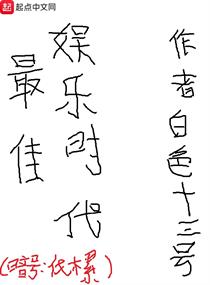 起点中文网
最佳
娱乐时代
作者白色十三号
(暗号:伏木累)